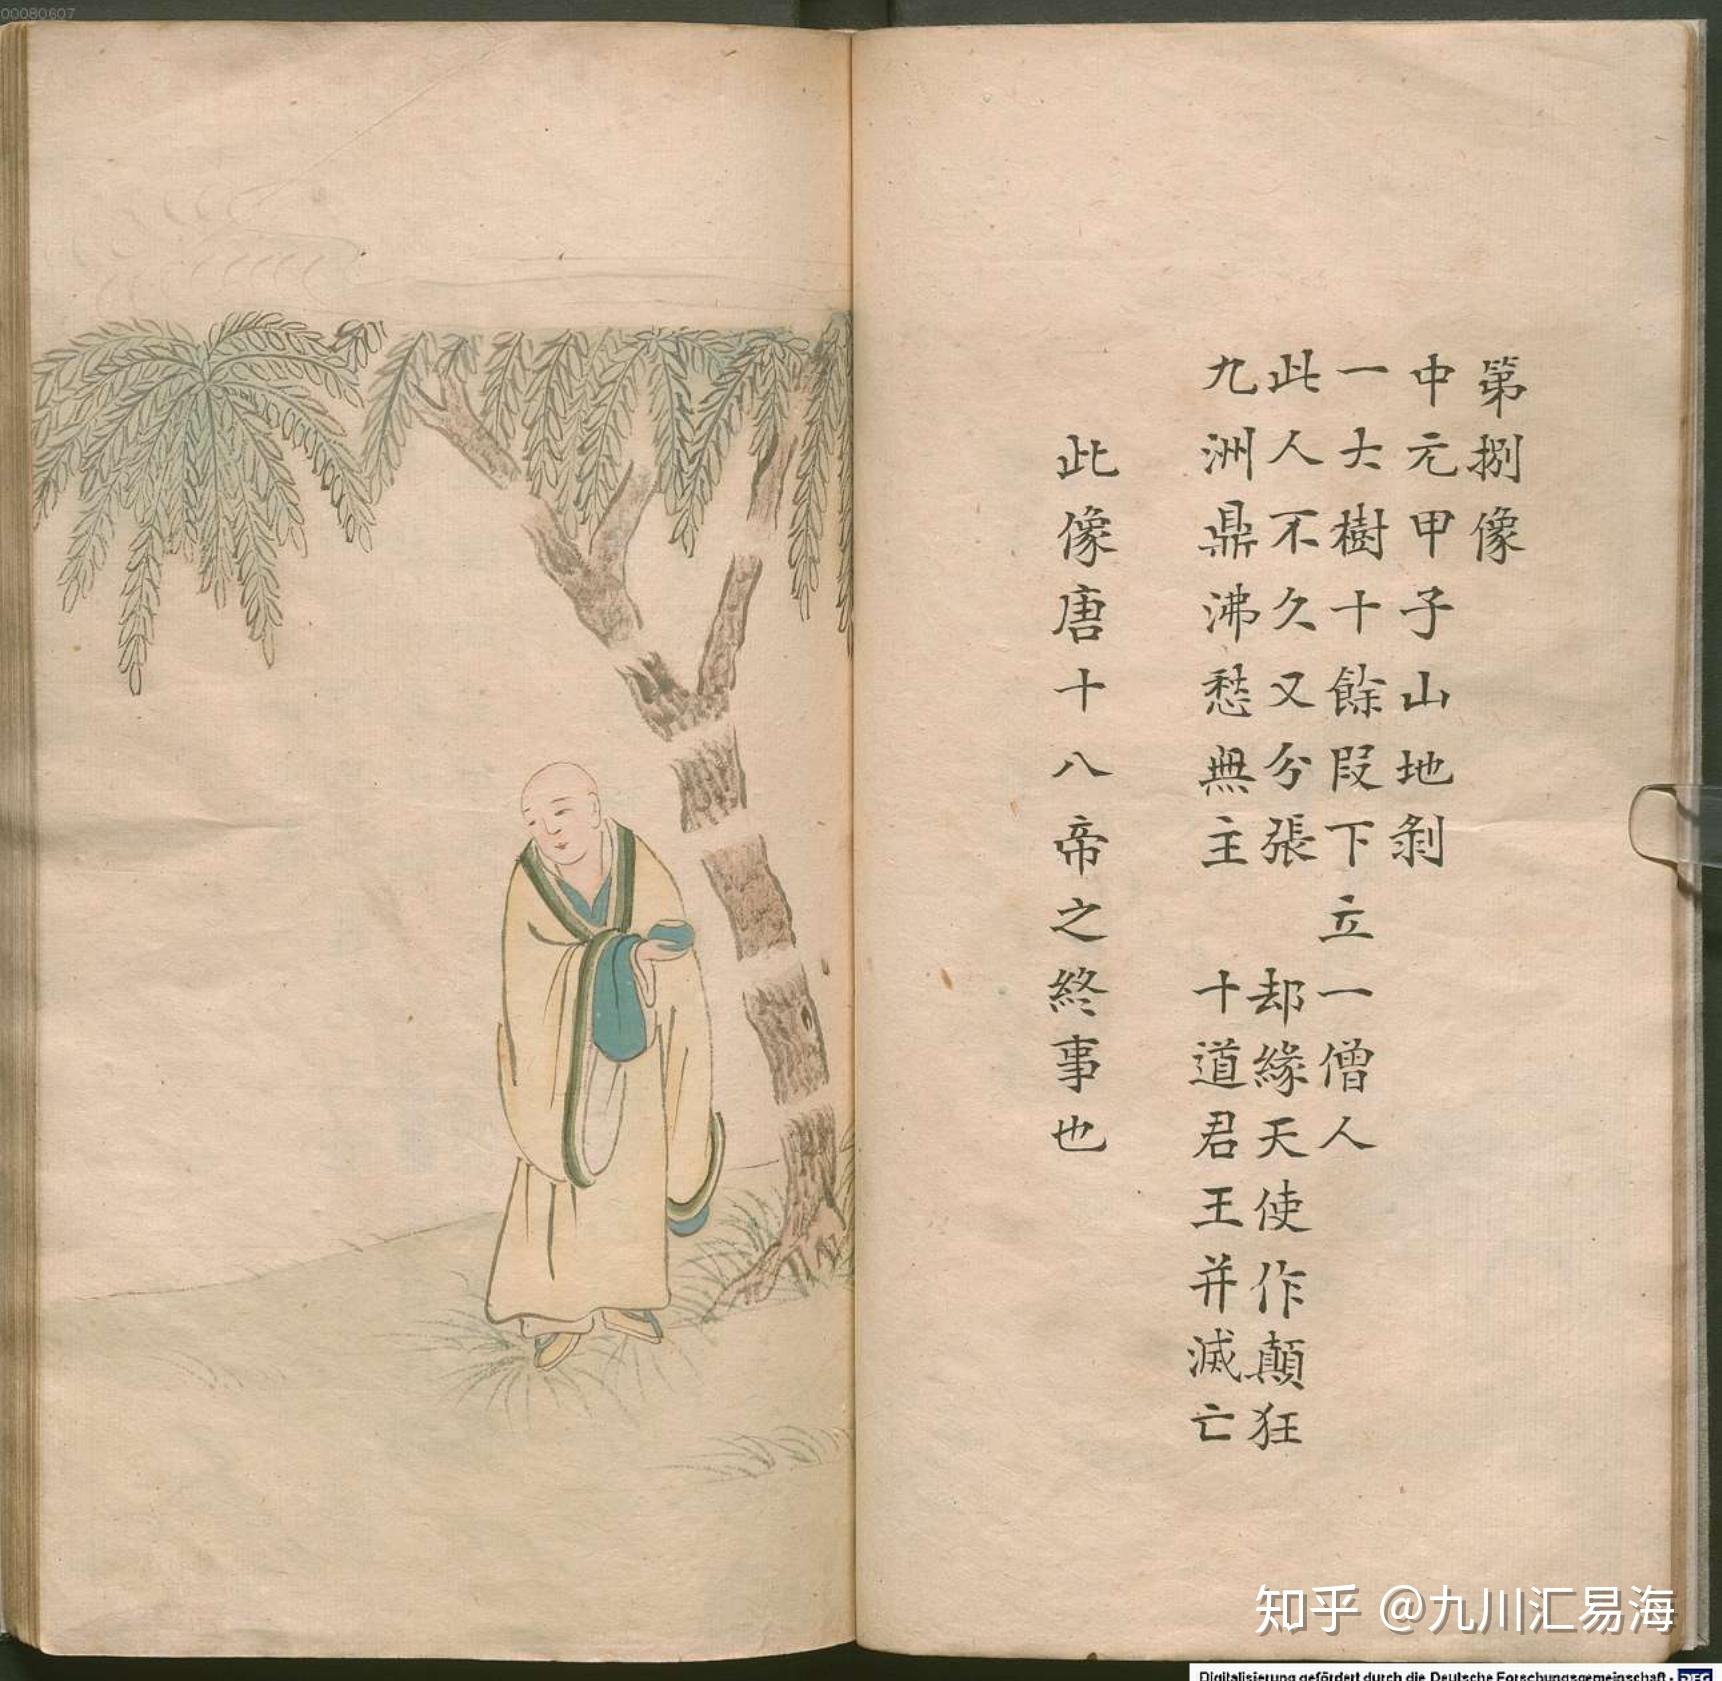 00080607
第捌像
中元甲子山地剝
一大樹十餘段下立一僧人
此人不久又分張 却緣天使作顛狂
九洲鼎沸愁無主 十道君王并滅亡
此像唐十八帝之終事也
知乎 @九川汇易海
Digitalisierung gefördert durch die Deutsche Forschungsgemeinschaft - DFG